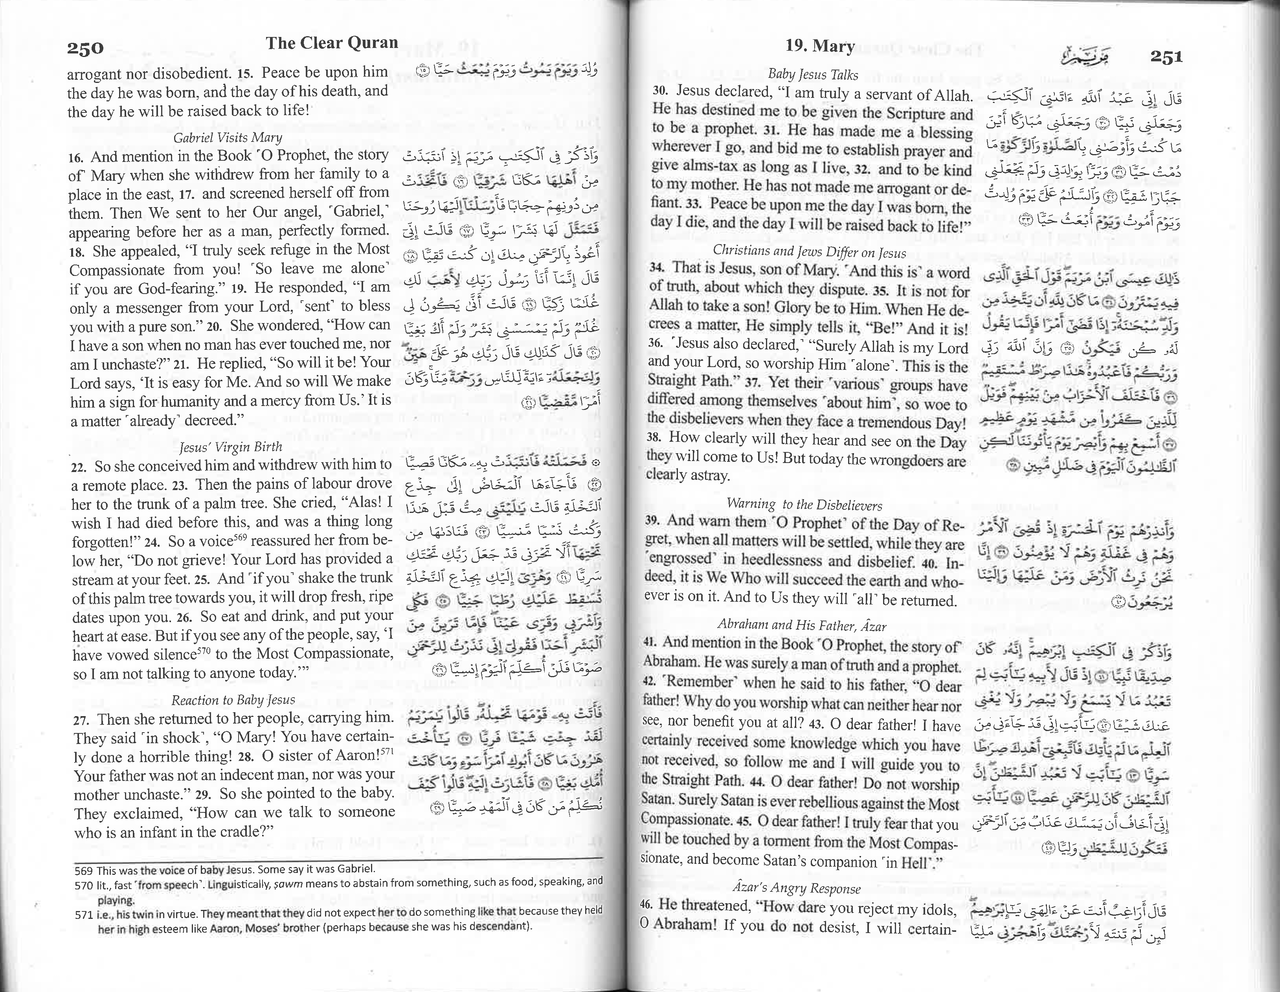 250
The Clear Quran
arrogant nor disobedient. 15. Peace be upon him
the day he was born, and the day of his death, and
the day he will be raised back to life!
Gabriel Visits Mary
16. And mention in the Book ˹O Prophet, the story
of˺ Mary when she withdrew from her family to a
place in the east, 17. and screened herself off from
them. Then We sent to her Our angel, ˹Gabriel,˺
appearing before her as a man, perfectly formed.
18. She appealed, “I truly seek refuge in the Most
Compassionate from you! ˹So leave me alone˺
if you are God-fearing.” 19. He responded, “I am
only a messenger from your Lord, ˹sent˺ to bless
you with a pure son.” 20. She wondered, “How can
I have a son when no man has ever touched me, nor
am I unchaste?” 21. He replied, “So will it be! Your
Lord says, ‘It is easy for Me. And so will We make
him a sign for humanity and a mercy from Us.’ It is
a matter ˹already˺ decreed.”
Jesus’ Virgin Birth
22. So she conceived him and withdrew with him to
a remote place. 23. Then the pains of labour drove
her to the trunk of a palm tree. She cried, “Alas! I
wish I had died before this, and was a thing long
forgotten!” 24. So a voice569 reassured her from be-
low her, “Do not grieve! Your Lord has provided a
stream at your feet. 25. And ˹if you˺ shake the trunk
of this palm tree towards you, it will drop fresh, ripe
dates upon you. 26. So eat and drink, and put your
heart at ease. But if you see any of the people, say, ‘I
have vowed silence570 to the Most Compassionate,
so I am not talking to anyone today.’”
Reaction to Baby Jesus
27. Then she returned to her people, carrying him.
They said ˹in shock˺, “O Mary! You have certain-
ly done a horrible thing! 28. O sister of Aaron!571
Your father was not an indecent man, nor was your
mother unchaste.” 29. So she pointed to the baby.
They exclaimed, “How can we talk to someone
who is an infant in the cradle?”
وُلِدَ وَيَوْمَ يَمُوتُ وَيَوْمَ يُبْعَثُ حَيًّا ۝١٥
وَٱذْكُرْ فِى ٱلْكِتَـٰبِ مَرْيَمَ إِذِ ٱنتَبَذَتْ
مِنْ أَهْلِهَا مَكَانًا شَرْقِيًّا ۝١٦ فَٱتَّخَذَتْ
مِن دُونِهِمْ حِجَابًا فَأَرْسَلْنَآ إِلَيْهَا رُوحَنَا
فَتَمَثَّلَ لَهَا بَشَرًا سَوِيًّا ۝١٧ قَالَتْ إِنِّىٓ
أَعُوذُ بِٱلرَّحْمَـٰنِ مِنكَ إِن كُنتَ تَقِيًّا ۝١٨
قَالَ إِنَّمَآ أَنَا۠ رَسُولُ رَبِّكِ لِأَهَبَ لَكِ
غُلَـٰمًا زَكِيًّا ۝١٩ قَالَتْ أَنَّىٰ يَكُونُ لِى
غُلَـٰمٌ وَلَمْ يَمْسَسْنِى بَشَرٌ وَلَمْ أَكُ بَغِيًّا
۝٢٠ قَالَ كَذَٰلِكِ قَالَ رَبُّكِ هُوَ عَلَىَّ هَيِّنٌ
وَلِنَجْعَلَهُۥٓ ءَايَةً لِّلنَّاسِ وَرَحْمَةً مِّنَّا وَكَانَ
أَمْرًا مَّقْضِيًّا ۝٢١
۞ فَحَمَلَتْهُ فَٱنتَبَذَتْ بِهِۦ مَكَانًا قَصِيًّا
۝٢٢ فَأَجَآءَهَا ٱلْمَخَاضُ إِلَىٰ جِذْعِ
ٱلنَّخْلَةِ قَالَتْ يَـٰلَيْتَنِى مِتُّ قَبْلَ هَـٰذَا
وَكُنتُ نَسْيًا مَّنسِيًّا ۝٢٣ فَنَادَىٰهَا مِن
تَحْتِهَآ أَلَّا تَحْزَنِى قَدْ جَعَلَ رَبُّكِ تَحْتَكِ
سَرِيًّا ۝٢٤ وَهُزِّىٓ إِلَيْكِ بِجِذْعِ ٱلنَّخْلَةِ
تُسَـٰقِطْ عَلَيْكِ رُطَبًا جَنِيًّا ۝٢٥ فَكُلِى
وَٱشْرَبِى وَقَرِّى عَيْنًا فَإِمَّا تَرَيِنَّ مِنَ
ٱلْبَشَرِ أَحَدًا فَقُولِىٓ إِنِّى نَذَرْتُ لِلرَّحْمَـٰنِ
صَوْمًا فَلَنْ أُكَلِّمَ ٱلْيَوْمَ إِنسِيًّا ۝٢٦
فَأَتَتْ بِهِۦ قَوْمَهَا تَحْمِلُهُۥ قَالُوا۟ يَـٰمَرْيَمُ
لَقَدْ جِئْتِ شَيْـًٔا فَرِيًّا ۝٢٧ يَـٰٓأُخْتَ
هَـٰرُونَ مَا كَانَ أَبُوكِ ٱمْرَأَ سَوْءٍ وَمَا كَانَتْ
أُمُّكِ بَغِيًّا ۝٢٨ فَأَشَارَتْ إِلَيْهِ قَالُوا۟ كَيْفَ
نُكَلِّمُ مَن كَانَ فِى ٱلْمَهْدِ صَبِيًّا ۝٢٩
569 This was the voice of baby Jesus. Some say it was Gabriel.
570 lit., fast ˹from speech˺. Linguistically, ṣawm means to abstain from something, such as food, speaking, and
playing.
571 i.e., his twin in virtue. They meant that they did not expect her to do something like that because they held
her in high esteem like Aaron, Moses’ brother (perhaps because she was his descendant).
19. Mary
مَرْيَم
251
Baby Jesus Talks
30. Jesus declared, “I am truly a servant of Allah.
He has destined me to be given the Scripture and
to be a prophet. 31. He has made me a blessing
wherever I go, and bid me to establish prayer and
give alms-tax as long as I live, 32. and to be kind
to my mother. He has not made me arrogant or de-
fiant. 33. Peace be upon me the day I was born, the
day I die, and the day I will be raised back to life!”
Christians and Jews Differ on Jesus
34. That is Jesus, son of Mary. ˹And this is˺ a word
of truth, about which they dispute. 35. It is not for
Allah to take a son! Glory be to Him. When He de-
crees a matter, He simply tells it, “Be!” And it is!
36. ˹Jesus also declared,˺ “Surely Allah is my Lord
and your Lord, so worship Him ˹alone˺. This is the
Straight Path.” 37. Yet their ˹various˺ groups have
differed among themselves ˹about him˺, so woe to
the disbelievers when they face a tremendous Day!
38. How clearly will they hear and see on the Day
they will come to Us! But today the wrongdoers are
clearly astray.
Warning to the Disbelievers
39. And warn them ˹O Prophet˺ of the Day of Re-
gret, when all matters will be settled, while they are
˹engrossed˺ in heedlessness and disbelief. 40. In-
deed, it is We Who will succeed the earth and who-
ever is on it. And to Us they will ˹all˺ be returned.
Abraham and His Father, Ȃzar
41. And mention in the Book ˹O Prophet, the story of˺
Abraham. He was surely a man of truth and a prophet.
42. ˹Remember˺ when he said to his father, “O dear
father! Why do you worship what can neither hear nor
see, nor benefit you at all? 43. O dear father! I have
certainly received some knowledge which you have
not received, so follow me and I will guide you to
the Straight Path. 44. O dear father! Do not worship
Satan. Surely Satan is ever rebellious against the Most
Compassionate. 45. O dear father! I truly fear that you
will be touched by a torment from the Most Compas-
sionate, and become Satan’s companion ˹in Hell˺.”
Ȃzar’s Angry Response
46. He threatened, “How dare you reject my idols,
O Abraham! If you do not desist, I will certain-
قَالَ إِنِّى عَبْدُ ٱللَّهِ ءَاتَىٰنِىَ ٱلْكِتَـٰبَ
وَجَعَلَنِى نَبِيًّا ۝٣٠ وَجَعَلَنِى مُبَارَكًا أَيْنَ
مَا كُنتُ وَأَوْصَـٰنِى بِٱلصَّلَوٰةِ وَٱلزَّكَوٰةِ مَا
دُمْتُ حَيًّا ۝٣١ وَبَرًّۢا بِوَٰلِدَتِى وَلَمْ يَجْعَلْنِى
جَبَّارًا شَقِيًّا ۝٣٢ وَٱلسَّلَـٰمُ عَلَىَّ يَوْمَ وُلِدتُّ
وَيَوْمَ أَمُوتُ وَيَوْمَ أُبْعَثُ حَيًّا ۝٣٣
ذَٰلِكَ عِيسَى ٱبْنُ مَرْيَمَ قَوْلَ ٱلْحَقِّ ٱلَّذِى
فِيهِ يَمْتَرُونَ ۝٣٤ مَا كَانَ لِلَّهِ أَن يَتَّخِذَ مِن
وَلَدٍ سُبْحَـٰنَهُۥٓ إِذَا قَضَىٰٓ أَمْرًا فَإِنَّمَا يَقُولُ
لَهُۥ كُن فَيَكُونُ ۝٣٥ وَإِنَّ ٱللَّهَ رَبِّى
وَرَبُّكُمْ فَٱعْبُدُوهُ هَـٰذَا صِرَٰطٌ مُّسْتَقِيمٌ
۝٣٦ فَٱخْتَلَفَ ٱلْأَحْزَابُ مِنۢ بَيْنِهِمْ فَوَيْلٌ
لِّلَّذِينَ كَفَرُوا۟ مِن مَّشْهَدِ يَوْمٍ عَظِيمٍ
۝٣٧ أَسْمِعْ بِهِمْ وَأَبْصِرْ يَوْمَ يَأْتُونَنَا لَـٰكِنِ
ٱلظَّـٰلِمُونَ ٱلْيَوْمَ فِى ضَلَـٰلٍ مُّبِينٍ ۝٣٨
وَأَنذِرْهُمْ يَوْمَ ٱلْحَسْرَةِ إِذْ قُضِىَ ٱلْأَمْرُ
وَهُمْ فِى غَفْلَةٍ وَهُمْ لَا يُؤْمِنُونَ ۝٣٩ إِنَّا
نَحْنُ نَرِثُ ٱلْأَرْضَ وَمَنْ عَلَيْهَا وَإِلَيْنَا
يُرْجَعُونَ ۝٤٠
وَٱذْكُرْ فِى ٱلْكِتَـٰبِ إِبْرَٰهِيمَ إِنَّهُۥ كَانَ
صِدِّيقًا نَّبِيًّا ۝٤١ إِذْ قَالَ لِأَبِيهِ يَـٰٓأَبَتِ لِمَ
تَعْبُدُ مَا لَا يَسْمَعُ وَلَا يُبْصِرُ وَلَا يُغْنِى
عَنكَ شَيْـًٔا ۝٤٢ يَـٰٓأَبَتِ إِنِّى قَدْ جَآءَنِى مِنَ
ٱلْعِلْمِ مَا لَمْ يَأْتِكَ فَٱتَّبِعْنِىٓ أَهْدِكَ صِرَٰطًا
سَوِيًّا ۝٤٣ يَـٰٓأَبَتِ لَا تَعْبُدِ ٱلشَّيْطَـٰنَ إِنَّ
ٱلشَّيْطَـٰنَ كَانَ لِلرَّحْمَـٰنِ عَصِيًّا ۝٤٤ يَـٰٓأَبَتِ
إِنِّىٓ أَخَافُ أَن يَمَسَّكَ عَذَابٌ مِّنَ ٱلرَّحْمَـٰنِ
فَتَكُونَ لِلشَّيْطَـٰنِ وَلِيًّا ۝٤٥
قَالَ أَرَاغِبٌ أَنتَ عَنْ ءَالِهَتِى يَـٰٓإِبْرَٰهِيمُ
لَئِن لَّمْ تَنتَهِ لَأَرْجُمَنَّكَ وَٱهْجُرْنِى مَلِيًّا